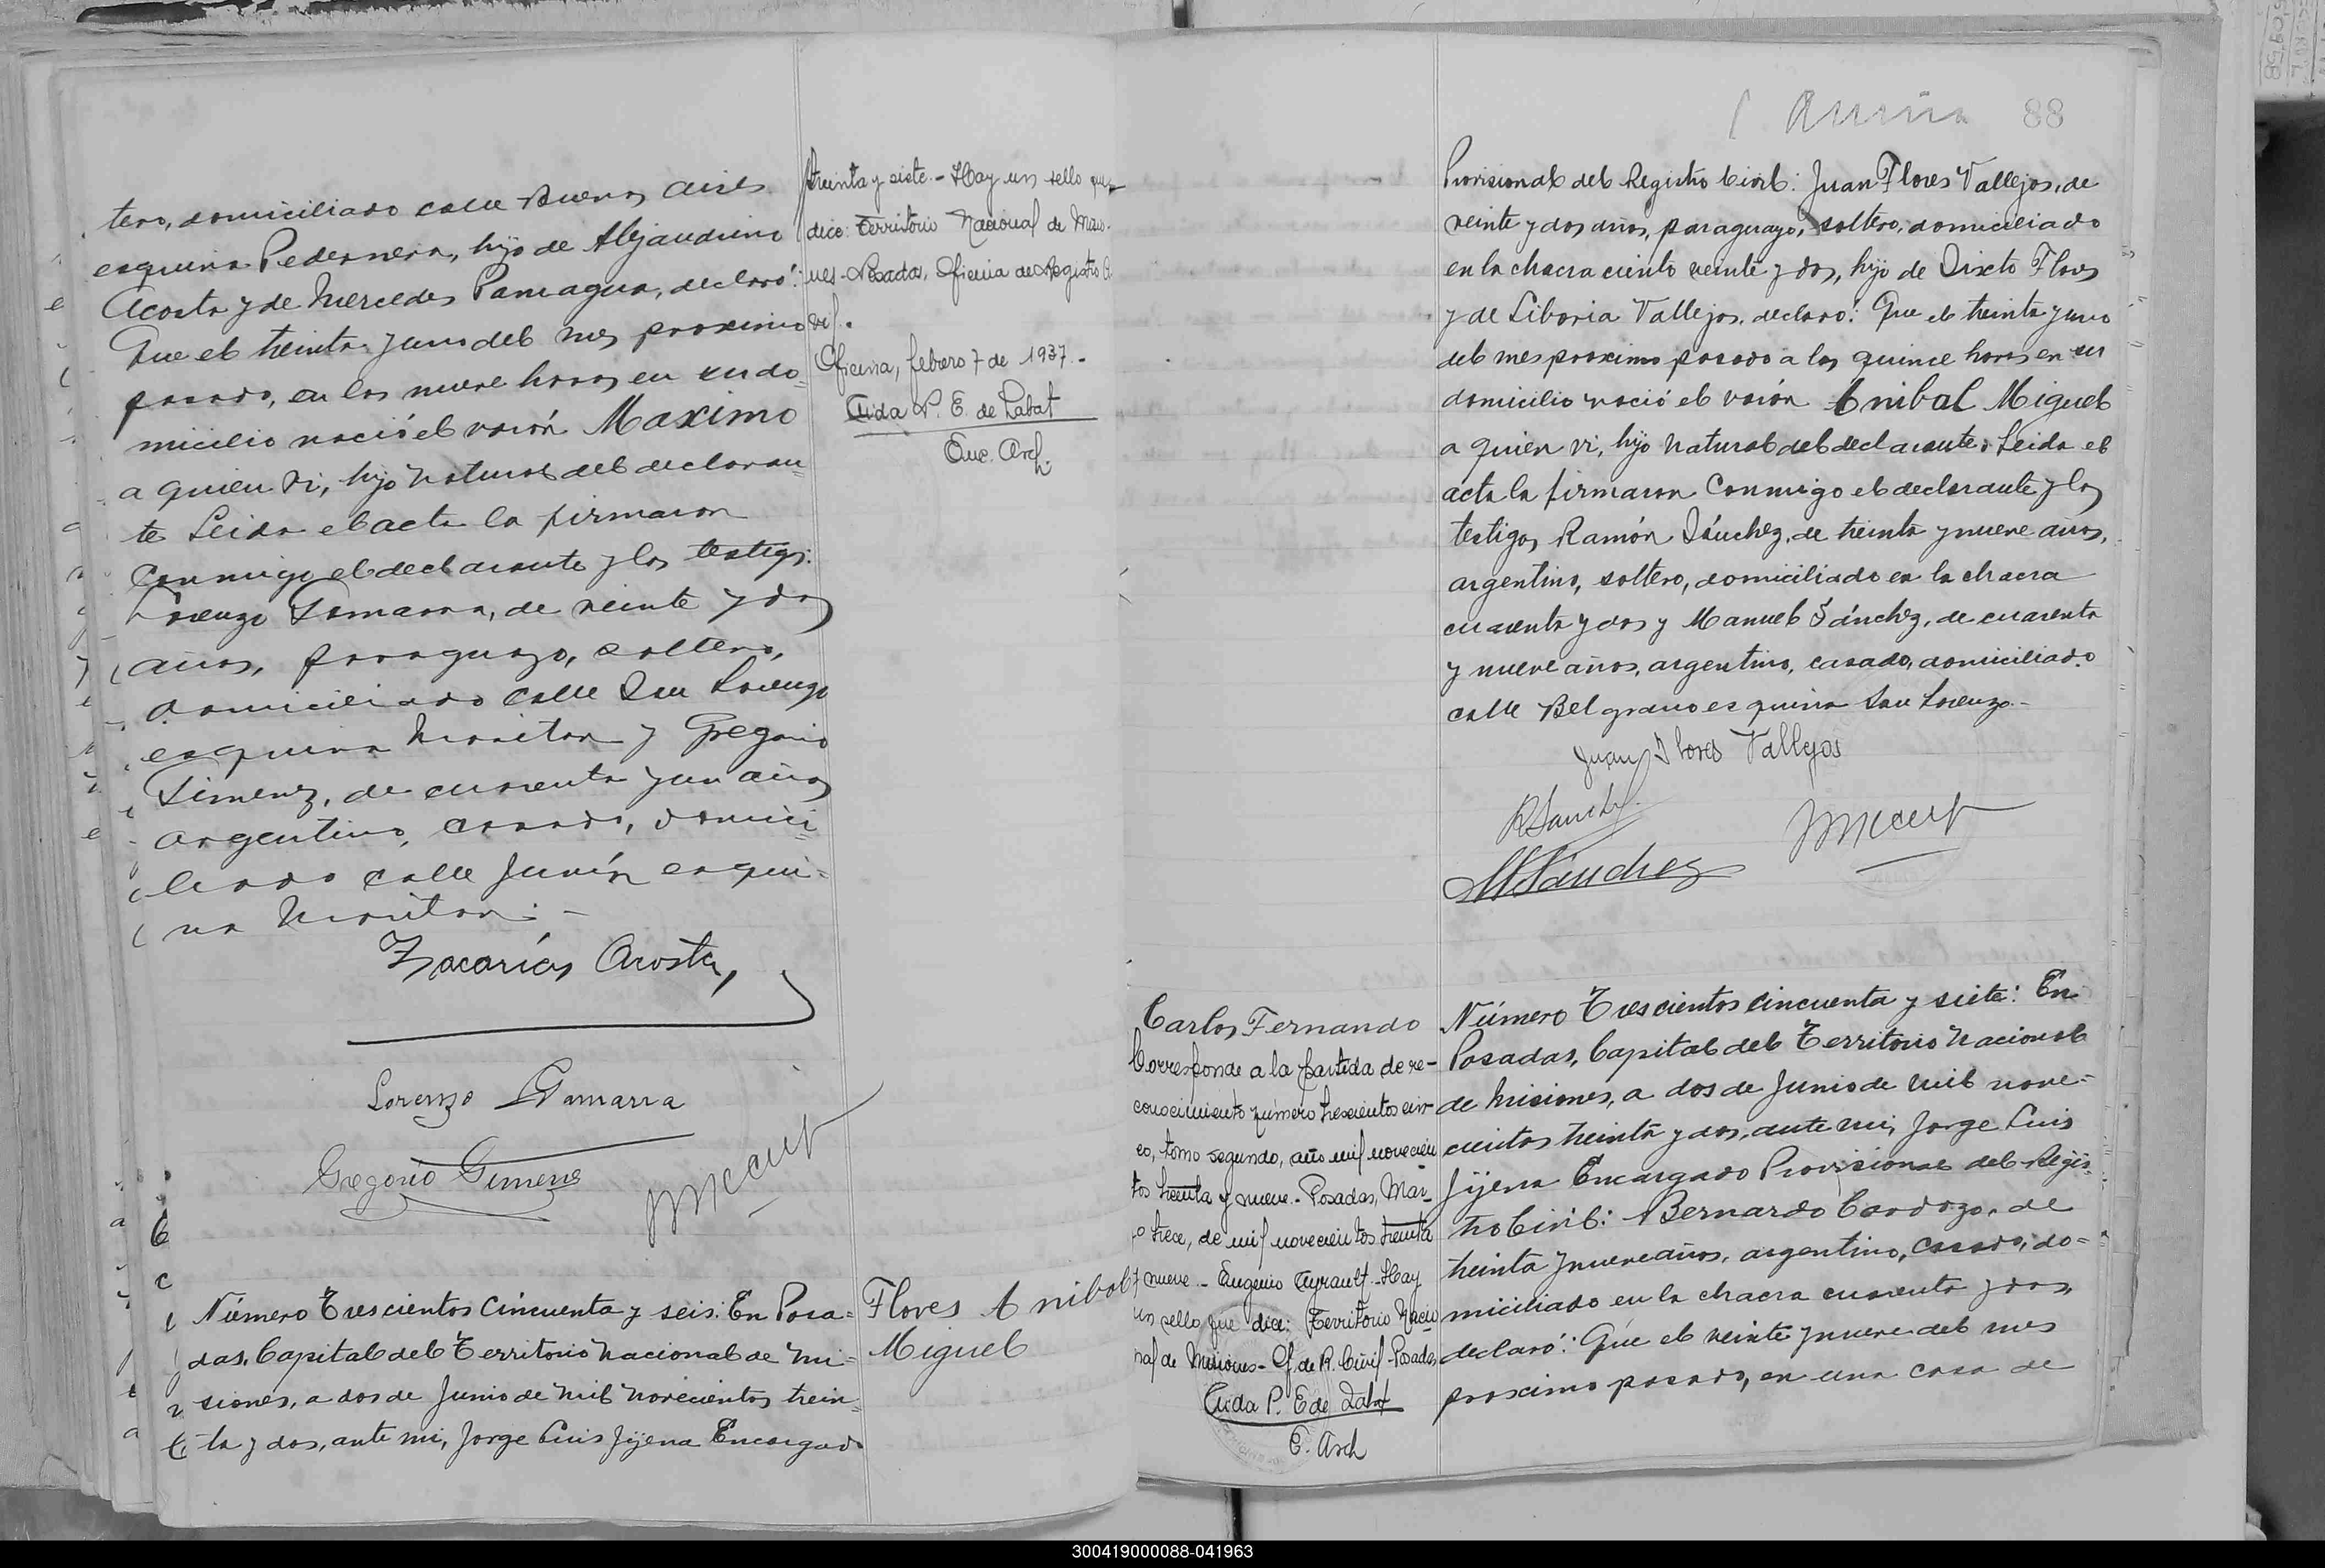 tero, domiciliado calle Buenos Aires
esquina Pedernera, hijo de Alejandrino
Acosta y de Mercedes Paniagua, declaró:
Que el treinta y uno del mes proximo
pasado, en las nueve horas en su do-
micilio nació el varón Maximo
a quien vi, hijo natural del declaran-
te Leida el acta la firmaron
conmigo el declarante y los testigos:
Lorenzo Gamarra, de veinte y dos
años, paraguayo, soltero,
domiciliado calle San Lorenzo
esquina Moritan y Gregorio
Gimenez, de cuarenta y un años
argentino, casado, domici-
liado calle Junín esqui-
na Moritan.-
Zacarías Acosta,
Lorenzo Gamarra
Gregorio Gimenez
Número Trescientos cincuenta y seis: En Posa-
das, Capital del Territorio Nacional de Mi-
siones, a dos de Junio de mil novecientos trein-
ta y dos, ante mi, Jorge Luis Jijena Encargado
treinta y siete.- Hay un sello que
dice: Territorio Nacional de Misio-
nes - Posadas, Oficina de Registro Ci
vil.
Oficina, febrero 7 de 1937.-
Aida P. E. de Labat
Enc. Arch.
Flores Anibal
Miguel
88
Provisional del Registro Civil: Juan Flores Vallejos, de
veinte y dos años, paraguayo, soltero, domiciliado
en la chacra ciento veinte y dos, hijo de Sixto Flores
y de Liboria Vallejos, declaró: Que el treinta y uno
del mes proximo pasado a las quince horas en su
domicilio nació el varón Anibal Miguel
a quien vi, hijo natural del declarante. Leida el
acta la firmaron conmigo el declarante y los
testigos Ramón Sánchez, de treinta y nueve años,
argentino, soltero, domiciliado en la chacra
cuarenta y dos y Manuel Sánchez, de cuarenta
y nueve años, argentino, casado, domiciliado
calle Belgrano esquina San Lorenzo.-
Juan Flores Vallejos
R Sanchez
M Sánchez
Carlos Fernando
Corresponde a la partida de re-
conocimiento número trescientos cin-
co, tomo segundo, año mil novecien
tos treinta y nueve.- Posadas, Mar-
zo trece, de mil novecientos treinta
y nueve.- Eugenio Ayrault.- Hay
un sello que dice: Territorio Nacio
nal de Misiones - Of. de R. Civil - Posadas
Aida P. E de Labat
E. Arch
Número Trescientos cincuenta y siete: En
Posadas, Capital del Territorio Nacional
de Misiones, a dos de Junio de mil nove-
cientos treinta y dos, ante mi, Jorge Luis
Jijena Encargado Provisional del Regis-
tro Civil: Bernardo Cardozo, de
treinta y nueve años, argentino, casado, do-
miciliado en la chacra cuarenta y dos,
declaró: Que el veinte y nueve del mes
proximo pasado, en una casa de
300419000088-041963